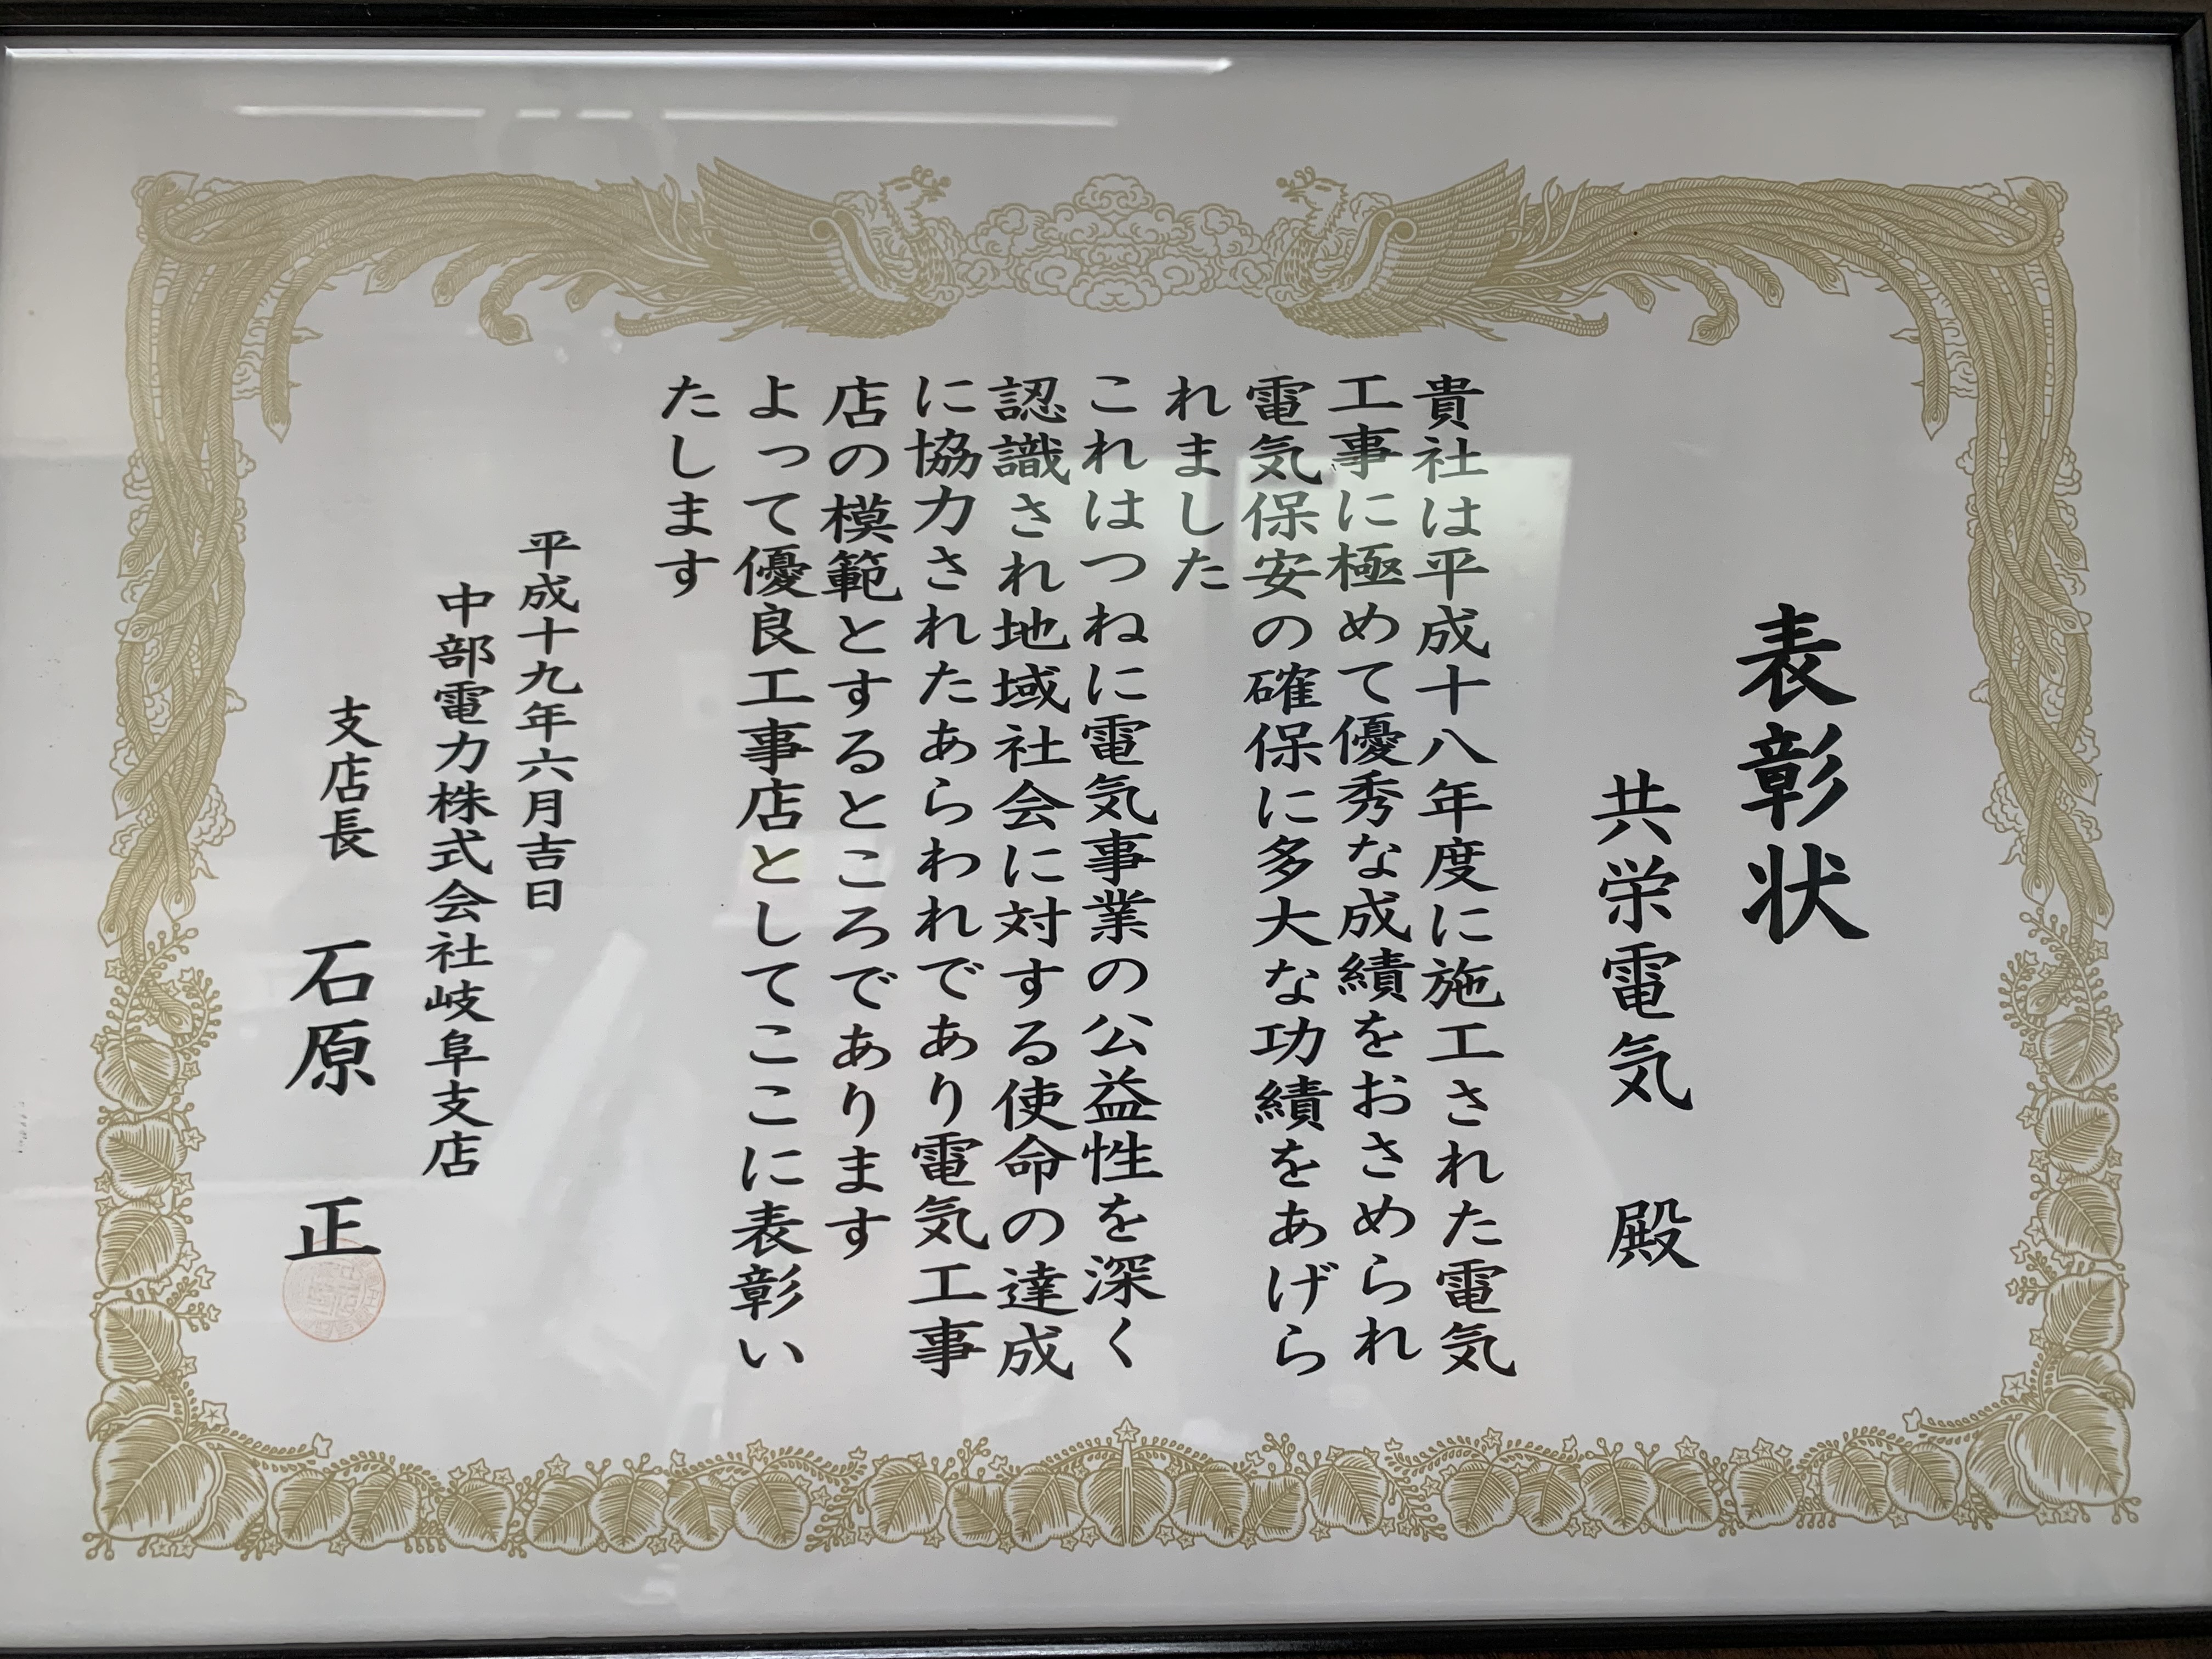 表彰状
共栄電気 殿
貴社は平成十八年度に施工された電気
工事に極めて優秀な成績をおさめられ
電気保安の確保に多大な功績をあげら
れました
これはつねに電気事業の公益性を深く
認識され地域社会に対する使命の達成
に協力されたあらわれであり電気工事
店の模範とするところであります
よって優良工事店としてここに表彰い
たします
平成十九年六月吉日
中部電力株式会社岐阜支店
支店長 石原 正